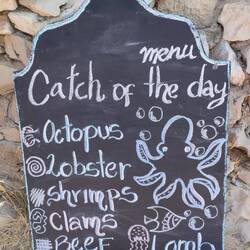 menu
Catch of the day
Octopus
Lobster
Shrimps
Clams
Beef Lamb